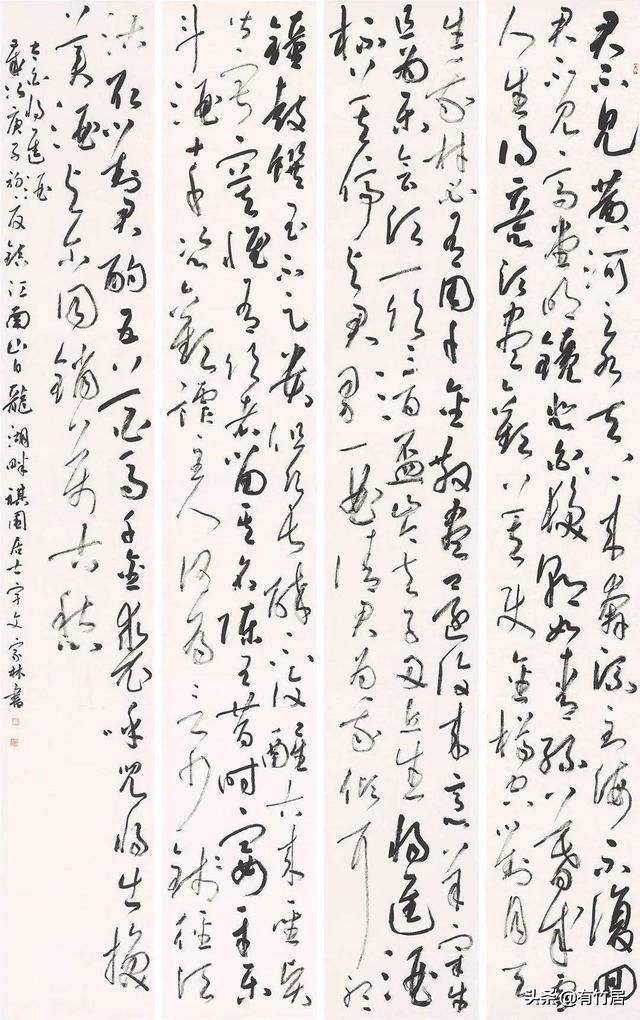 君不見黃河之水天上來奔流到海不復回
君不見高堂明鏡悲白髮朝如青絲暮成雪
人生得意須盡歡莫使金樽空對月天
生我材必有用千金散盡還復來烹羊宰牛
且為樂會須一飲三百盃岑夫子丹丘生將進酒
杯莫停與君歌一曲請君為我傾耳聽
鐘鼓饌玉不足貴但願長醉不復醒古來聖賢
皆寂寞惟有飲者留其名陳王昔時宴平樂
斗酒十千恣歡謔主人何為言少錢徑須
沽取對君酌五花馬千金裘呼兒將出換
美酒與爾同銷萬古愁
太白將進酒
歲次庚子初夏鎮江南山白龍湖畔祺園居士宇文家林書
头条@有竹居